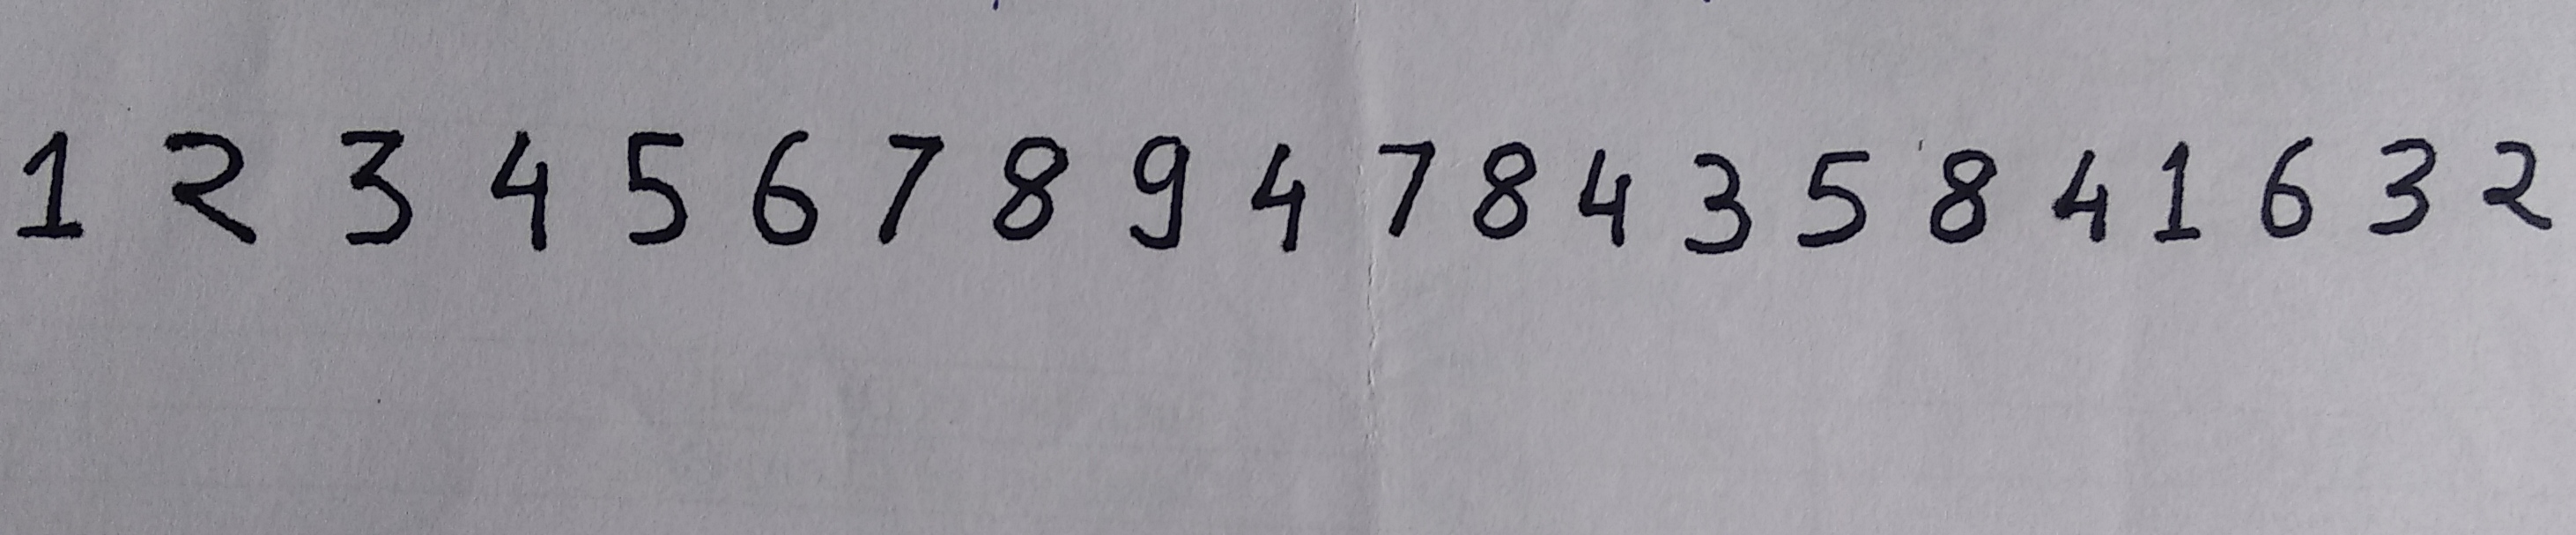 1 2 3 4 5 6 7 8 9 4 7 8 4 3 5 8 4 1 6 3 2